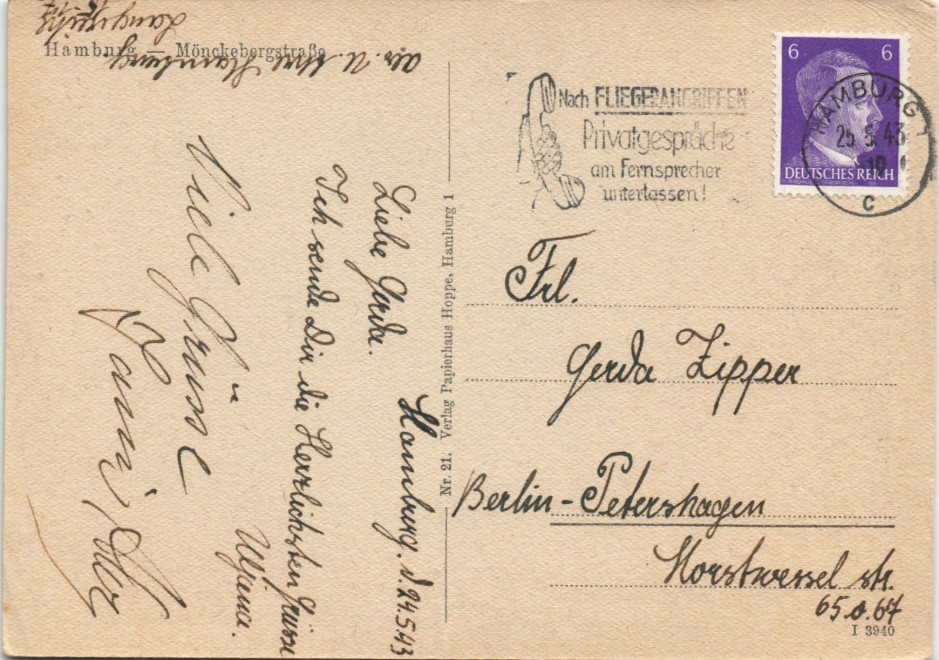 Hamburg — Mönckebergstraße
Nach FLIEGERANGRIFFEN
Privatgespräche
am Fernsprecher
unterlassen!
6 6
DEUTSCHES REICH
HAMBURG 1
25.5.43
c
Hamburg. d. 24.5.43
Liebe Gerda.
Ich sende Dir die Herzlichsten Grüsse
Viele Grüsse
Nr. 21. Verlag Papierhaus Hoppe, Hamburg 1
Frl.
Gerda Zipper
Berlin-Petershagen
Horstwessel str.
65.o.67
I 3940